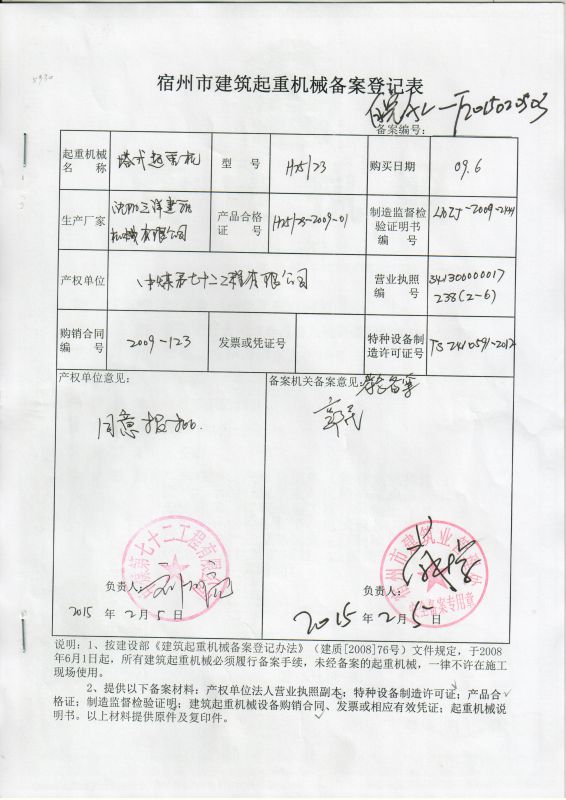 宿州市建筑起重机械备案登记表
备案编号:
起重机械名 称 塔式起重机 型 号 H25/23 购买日期 09.6
生产厂家 沈阳三洋建筑机械有限公司 产品合格证 号 H25/23-2009-01 制造监督检验证明书编 号
产权单位 中煤第七十二工程有限公司 营业执照编 号 341300000017238(2-6)
购销合同编 号 2009-123 发票或凭证号 特种设备制造许可证号 TS2410591-2012
产权单位意见: 备案机关备案意见:
同意
负责人: 负责人:
2015 年 2 月 5 日 2015 年 2 月 5 日
说明:1、按建设部《建筑起重机械备案登记办法》(建质[2008]76号)文件规定,于2008
年6月1日起,所有建筑起重机械必须履行备案手续,未经备案的起重机械,一律不许在施工
现场使用。
2、提供以下备案材料:产权单位法人营业执照副本;特种设备制造许可证;产品合
格证;制造监督检验证明;建筑起重机械设备购销合同、发票或相应有效凭证;起重机械说
明书。以上材料提供原件及复印件。